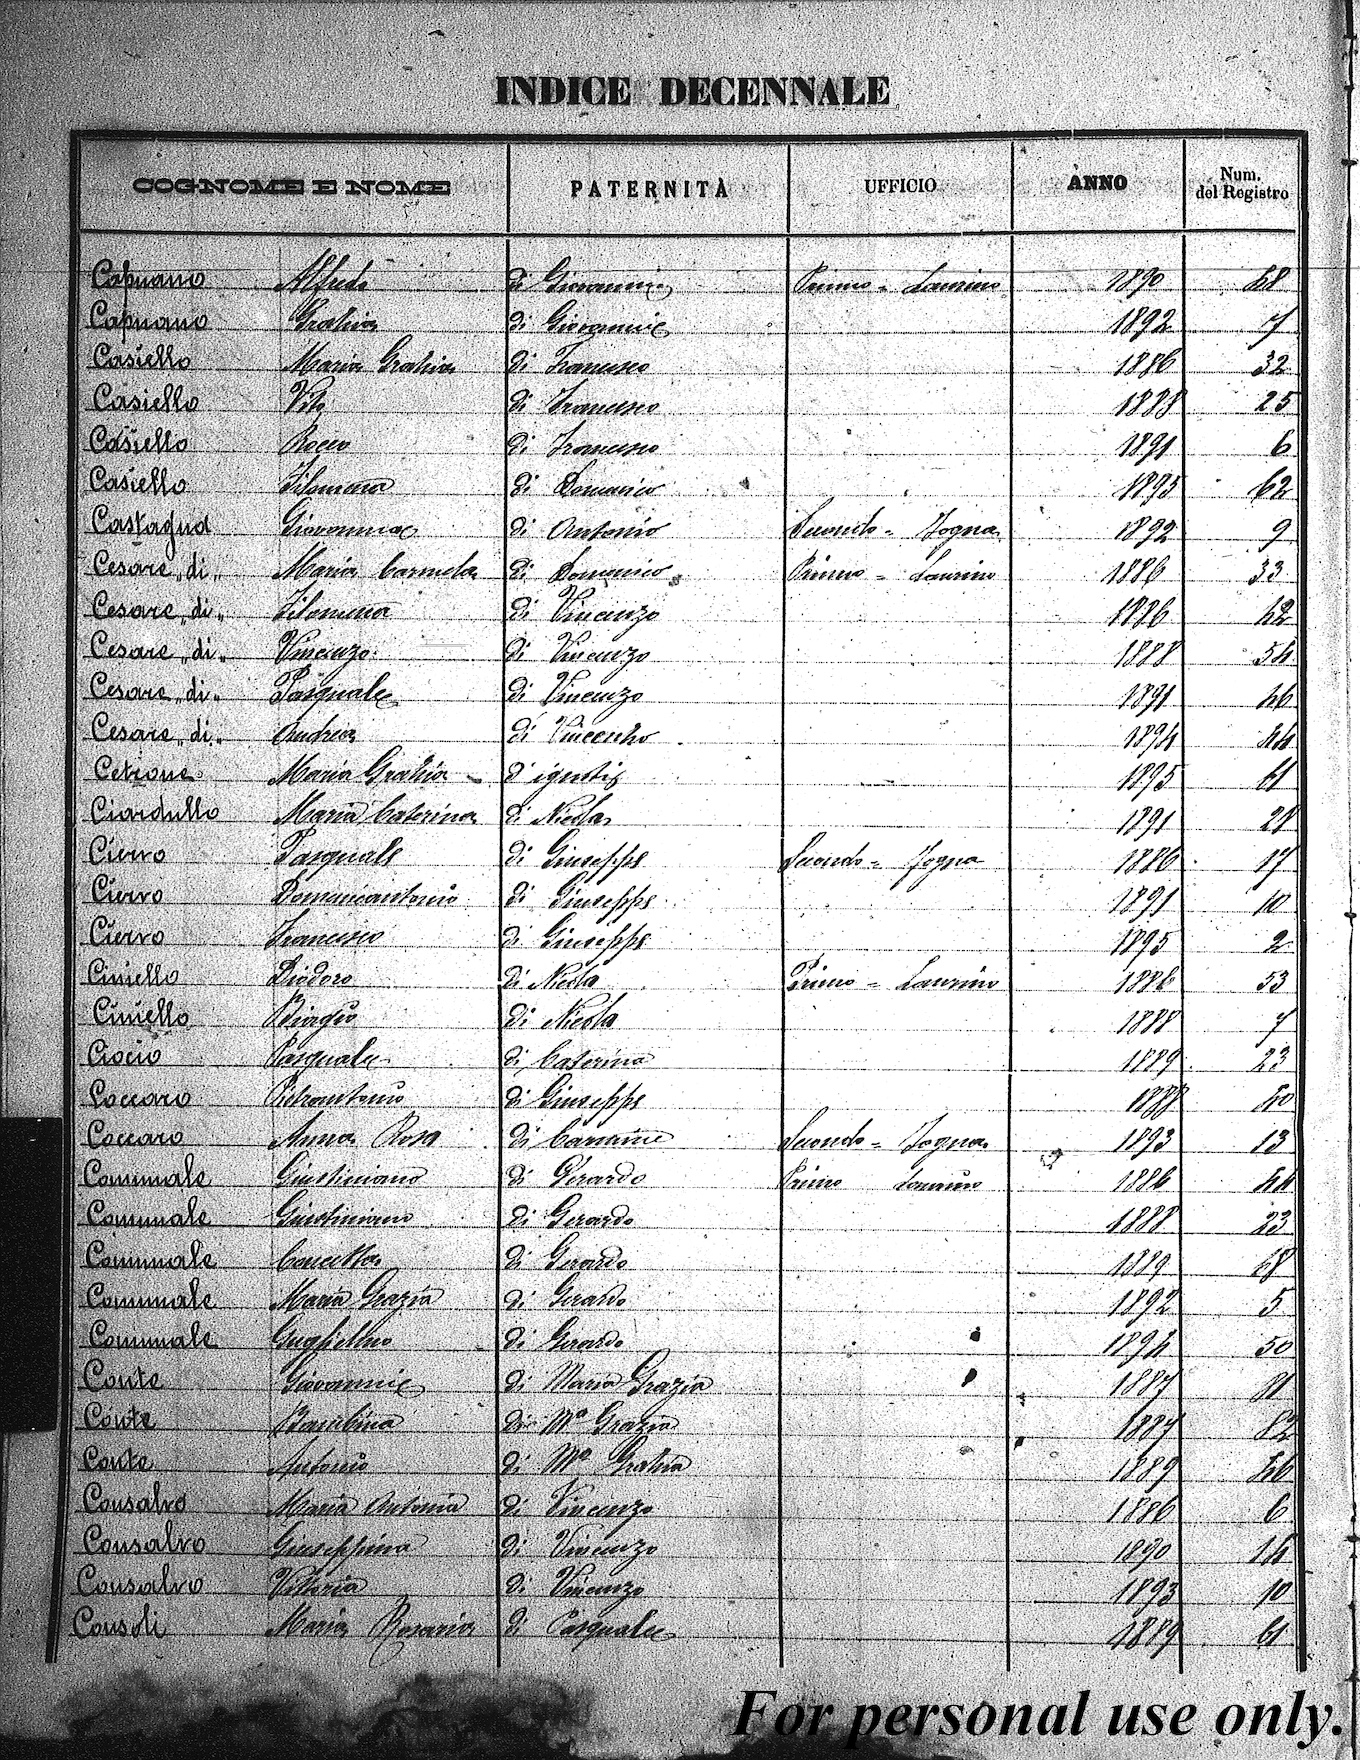 INDICE DECENNALE
COGNOME E NOME PATERNITÀ UFFICIO ANNO Num. del Registro
Capuano Alfredo di Giovanni Primo = Laurino 1890 48
Capuano Grahia di Giovanni 1892 7
Casiello Maria Grahia di Francesco 1886 32
Casiello Vito di Francesco 1888 25
Casiello Rocco di Francesco 1891 6
Casiello Filomena di Domenico 1895 62
Castagna Giovanna di Antonio Secondo = Fogna 1892 9
Cesare „di„ Maria Carmela di Domenico Primo = Laurino 1886 33
Cesare „di„ Filomena di Vincenzo 1886 42
Cesare „di„ Vincenzo di Vincenzo 1888 54
Cesare „di„ Pasquale di Vincenzo 1891 46
Cesare „di„ Andrea di Vincenho 1894 44
Cetrone Maria Grahia d'ignoti 1895 61
Ciardullo Maria Caterina di Nicola 1891 28
Ciervo Pasquale di Giuseppe Secondo = Fogna 1886 17
Ciervo Domenicantonio di Giuseppe 1891 10
Ciervo Francesco di Giuseppe 1895 2
Ciniello Diodoro di Nicola Primo = Laurino 1886 53
Ciniello Biagio di Nicola 1888 7
Ciocio Pasquale di Caterina 1889 23
Coccaro Pietrantonio di Giuseppe 1888 40
Coccaro Anna Rosa di Carmine Secondo = Fogna 1893 13
Comunale Giustiniano di Gerardo Primo Laurino 1886 44
Comunale Giustiniano di Gerardo 1888 23
Comunale Concetta di Gerardo 1889 48
Comunale Maria Grazia di Gerardo 1892 5
Comunale Guglielmo di Gerardo 1894 50
Conte Giovanni di Maria Grazia 1887 81
Conte Bambina di Mª Grazia 1887 82
Conte Antonio di Mª Grahia 1889 46
Consalvo Maria Antonia di Vincenzo 1886 6
Consalvo Giuseppina di Vincenzo 1890 14
Consalvo Vitoria di Vincenzo 1893 10
Consoli Maria Rosaria di Pasquale 1889 61
For personal use only.